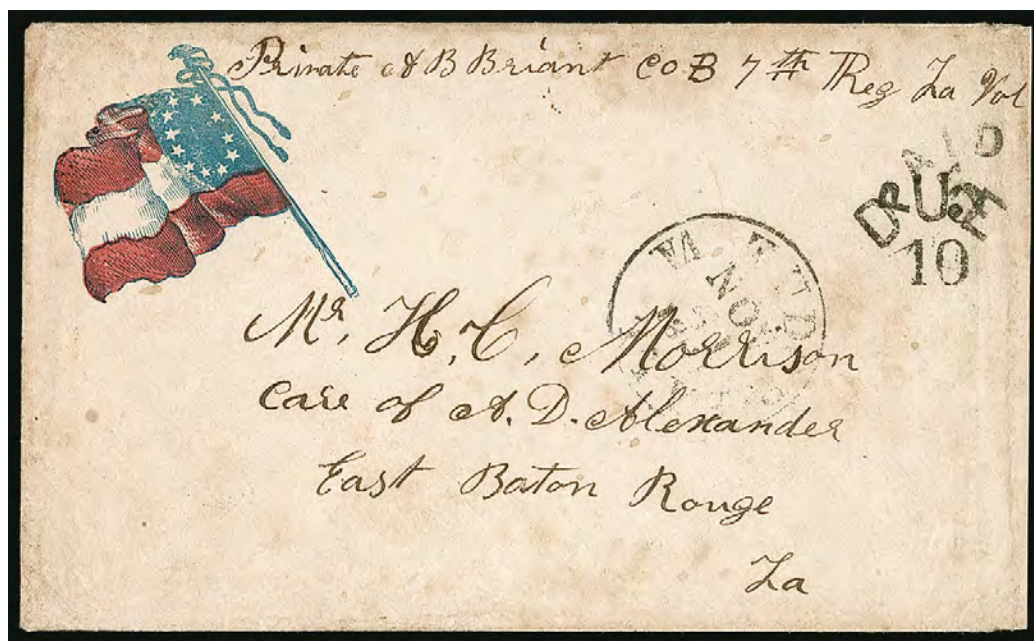 Private A B Briant CO B 7th Reg La Vol
PAID
DUE
5
10
VA.
Mr. H. C. Morrison
Care of A. D. Alexander
East Baton Rouge
La